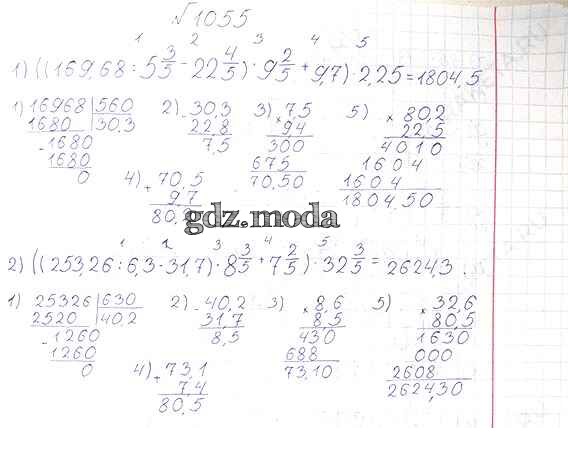 √1055
1 2 3 4 5
1) ((169,68 : 5 3/5 - 22 4/5) · 9 2/5 + 9,7) · 2,25 = 1804,5
1) 16968 | 560 2) - 30,3 3) × 7,5 5) × 80,2
1680 | 30,3 22,8 9,4 22,5
- 1680 7,5 300 4010
1680 675 1604
0 4) + 70,5 70,50 1604
9,7 1804,50
80,2
gdz.moda
1 2 3 4 5
2) ((253,26 : 6,3 - 31,7) · 8 3/5 + 7 2/5) · 32 3/5 = 2624,3
1) 25326 | 630 2) - 40,2 3) × 8,6 5) × 32,6
2520 | 40,2 31,7 8,5 80,5
- 1260 8,5 430 1630
1260 688 000
0 4) + 73,1 73,10 2608
7,4 2624,30
80,5